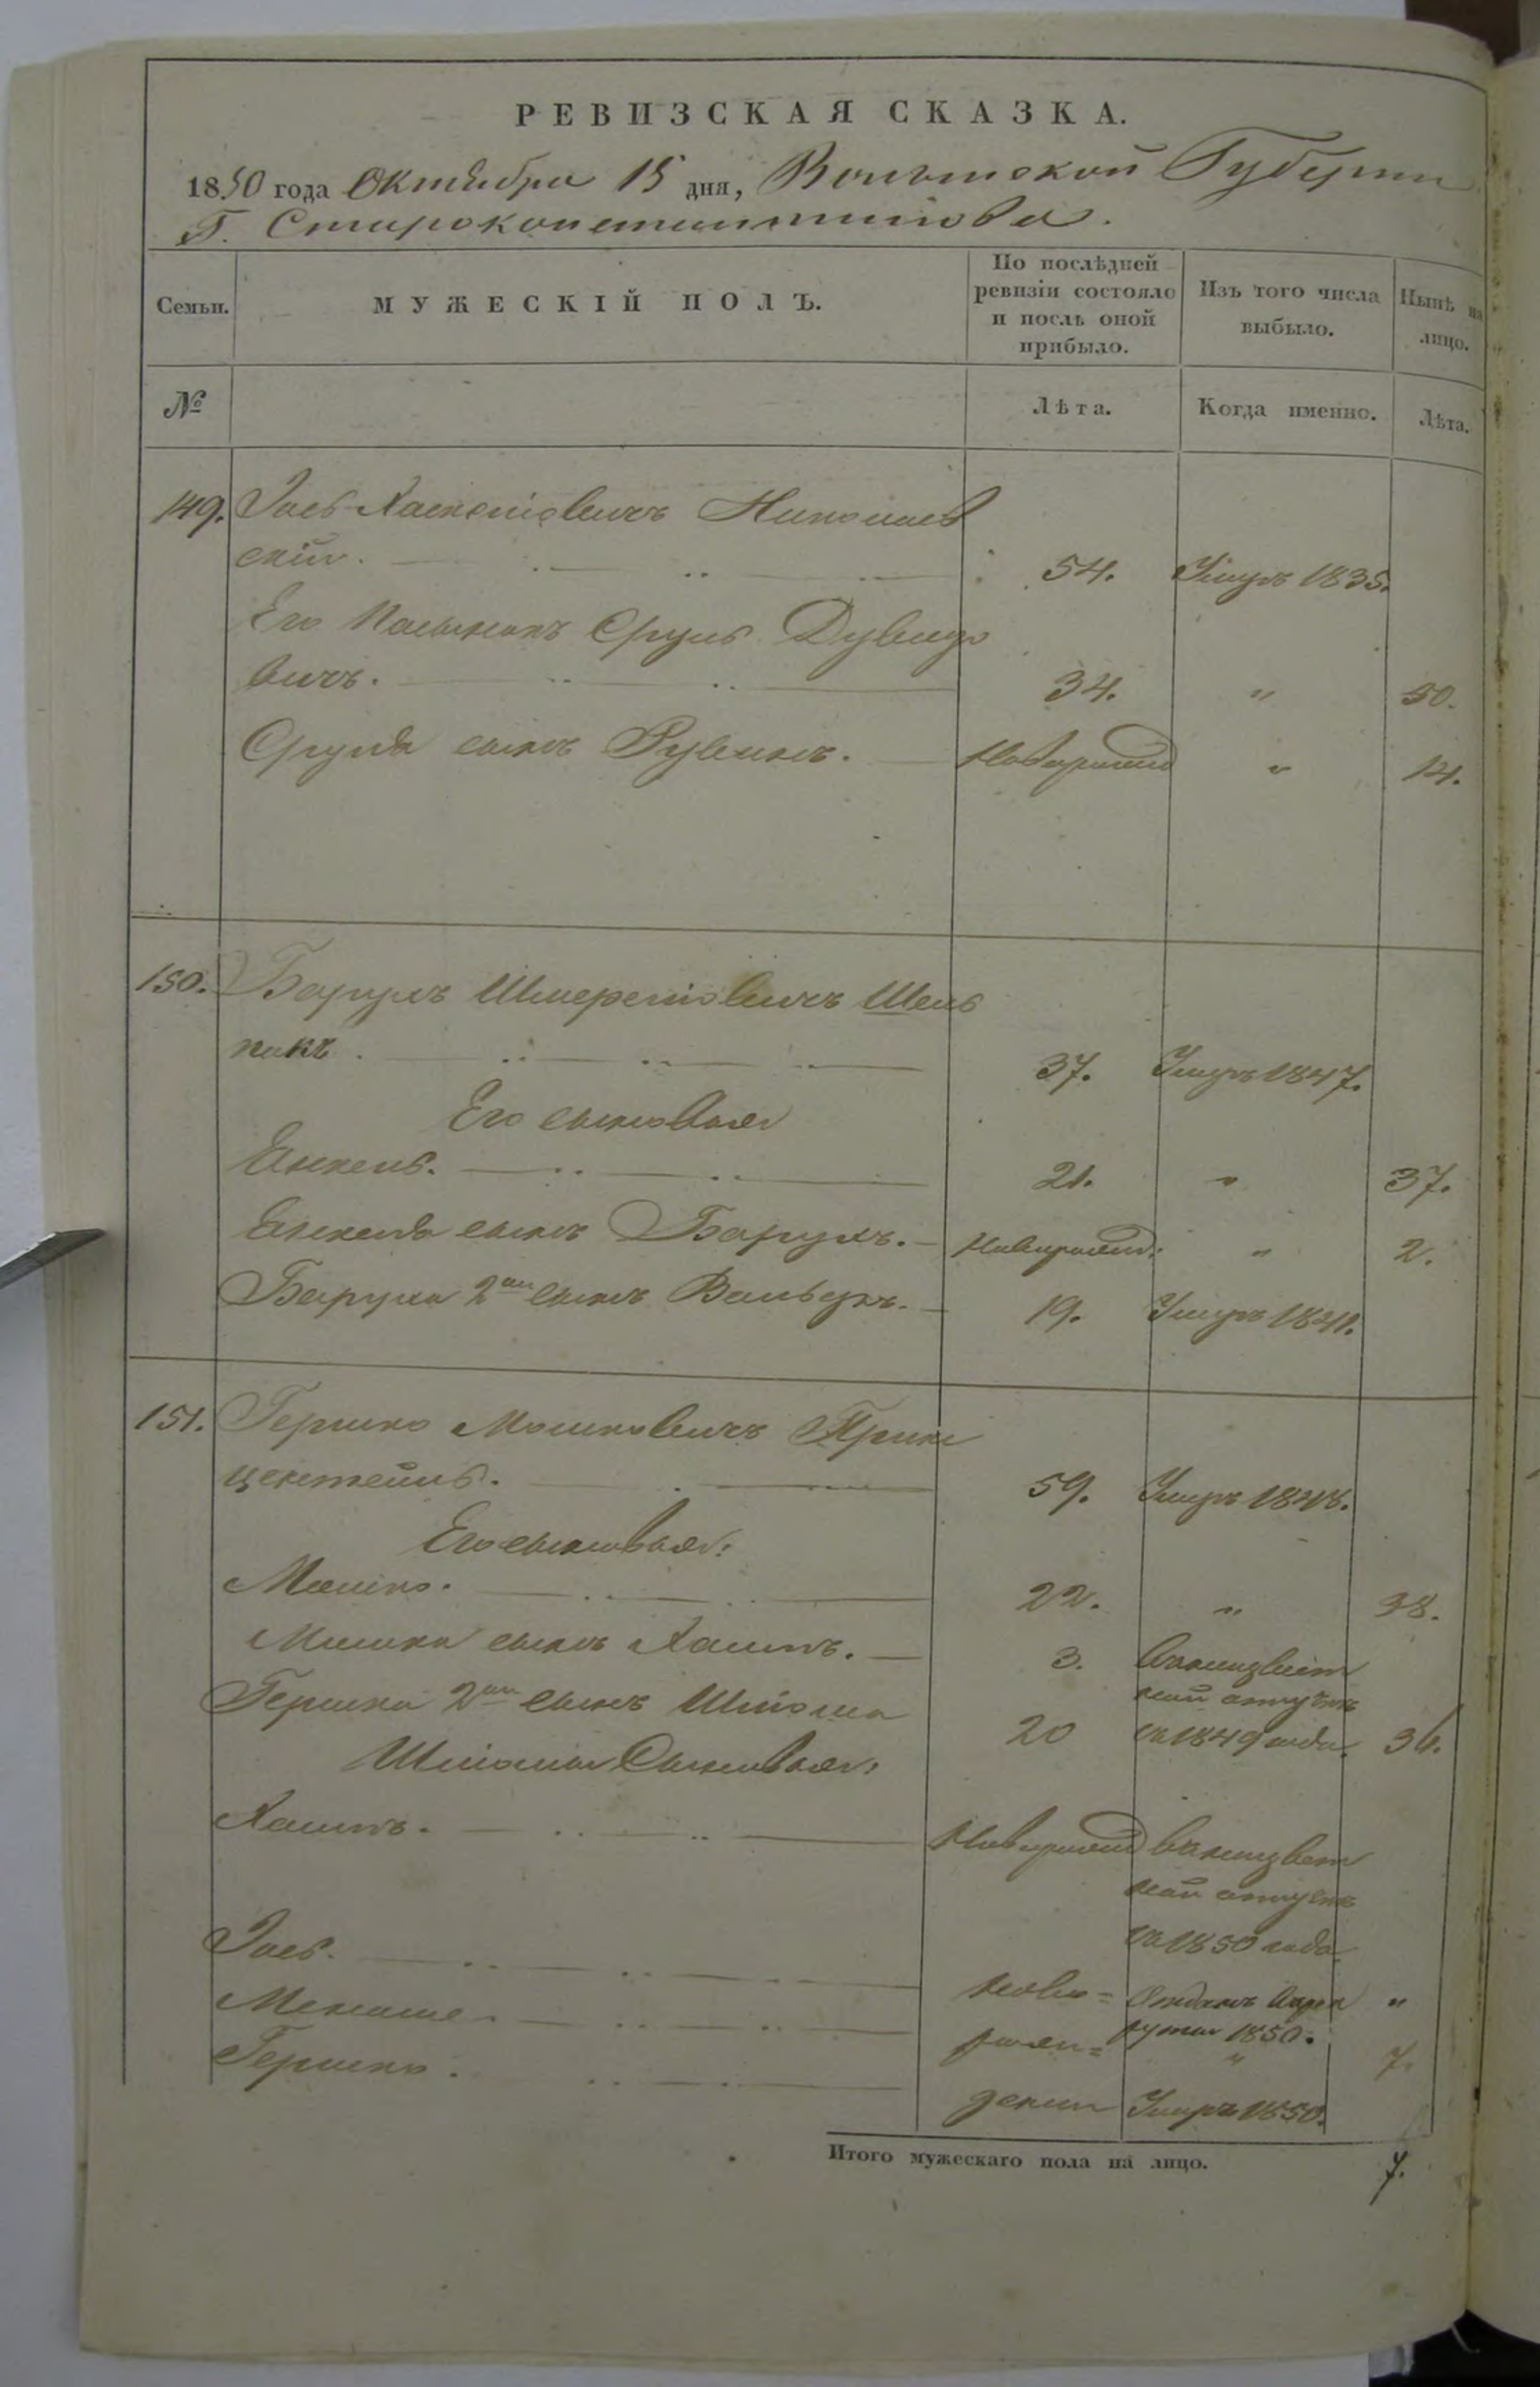 РЕВИЗСКАЯ СКАЗКА.
1850 года Октября 15 дня, Волынской Губернии
Г. Староконстантинова.
Семьи.
МУЖЕСКІЙ ПОЛЪ.
По послѣдней ревизіи состояло и послѣ оной прибыло.
Изъ того числа выбыло.
Нынѣ на лицо.
№
Лѣта.
Когда именно.
Лѣта.
149. Іось Хаскеліовичъ Николаев
скій. 54. Умеръ 1835.
Его Пасынокъ Сруль Дувидо
вичъ. 34. " 50.
Сруля сынъ Рувинъ. Новорожд " 14.
150. Барухъ Шмереліовичъ Шель
никъ. 37. Умеръ 1847.
Его сыновья
Янкель. 21. " 37.
Янкеля сынъ Барухъ. Новорожд: " 2.
Баруха 2й сынъ Вольфъ. 19. Умеръ 1841.
151. Гершко Мошковичъ Принс
центейнъ. 59. Умеръ 1848.
Его сыновья:
Мошко. 22. " 38.
Мошка сынъ Хаимъ. 3. в неизвѣст
ной отлучкѣ
Гершка 2й сынъ Шліома 20 съ 1849 года. 36.
Шліомы Сыновья:
Хаимъ. Новорожд в неизвѣст
ной отлучкѣ
съ 1850 года.
Іось. ново= Отданъ в рек "
Менаше. рожд= руты 1850. " 7.
Гершко. денны Умеръ 1850.
Итого мужескаго пола на лицо. 7.